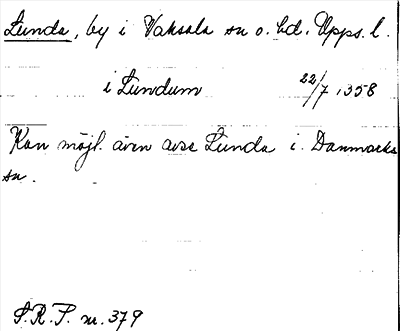 Lunda, by i Vaksala sn o. hd. Upps. l.
i Lundum 22/7 1358
Kan möjl. även avse Lunda i Danmarks
sn.
S.R.P. nr. 379